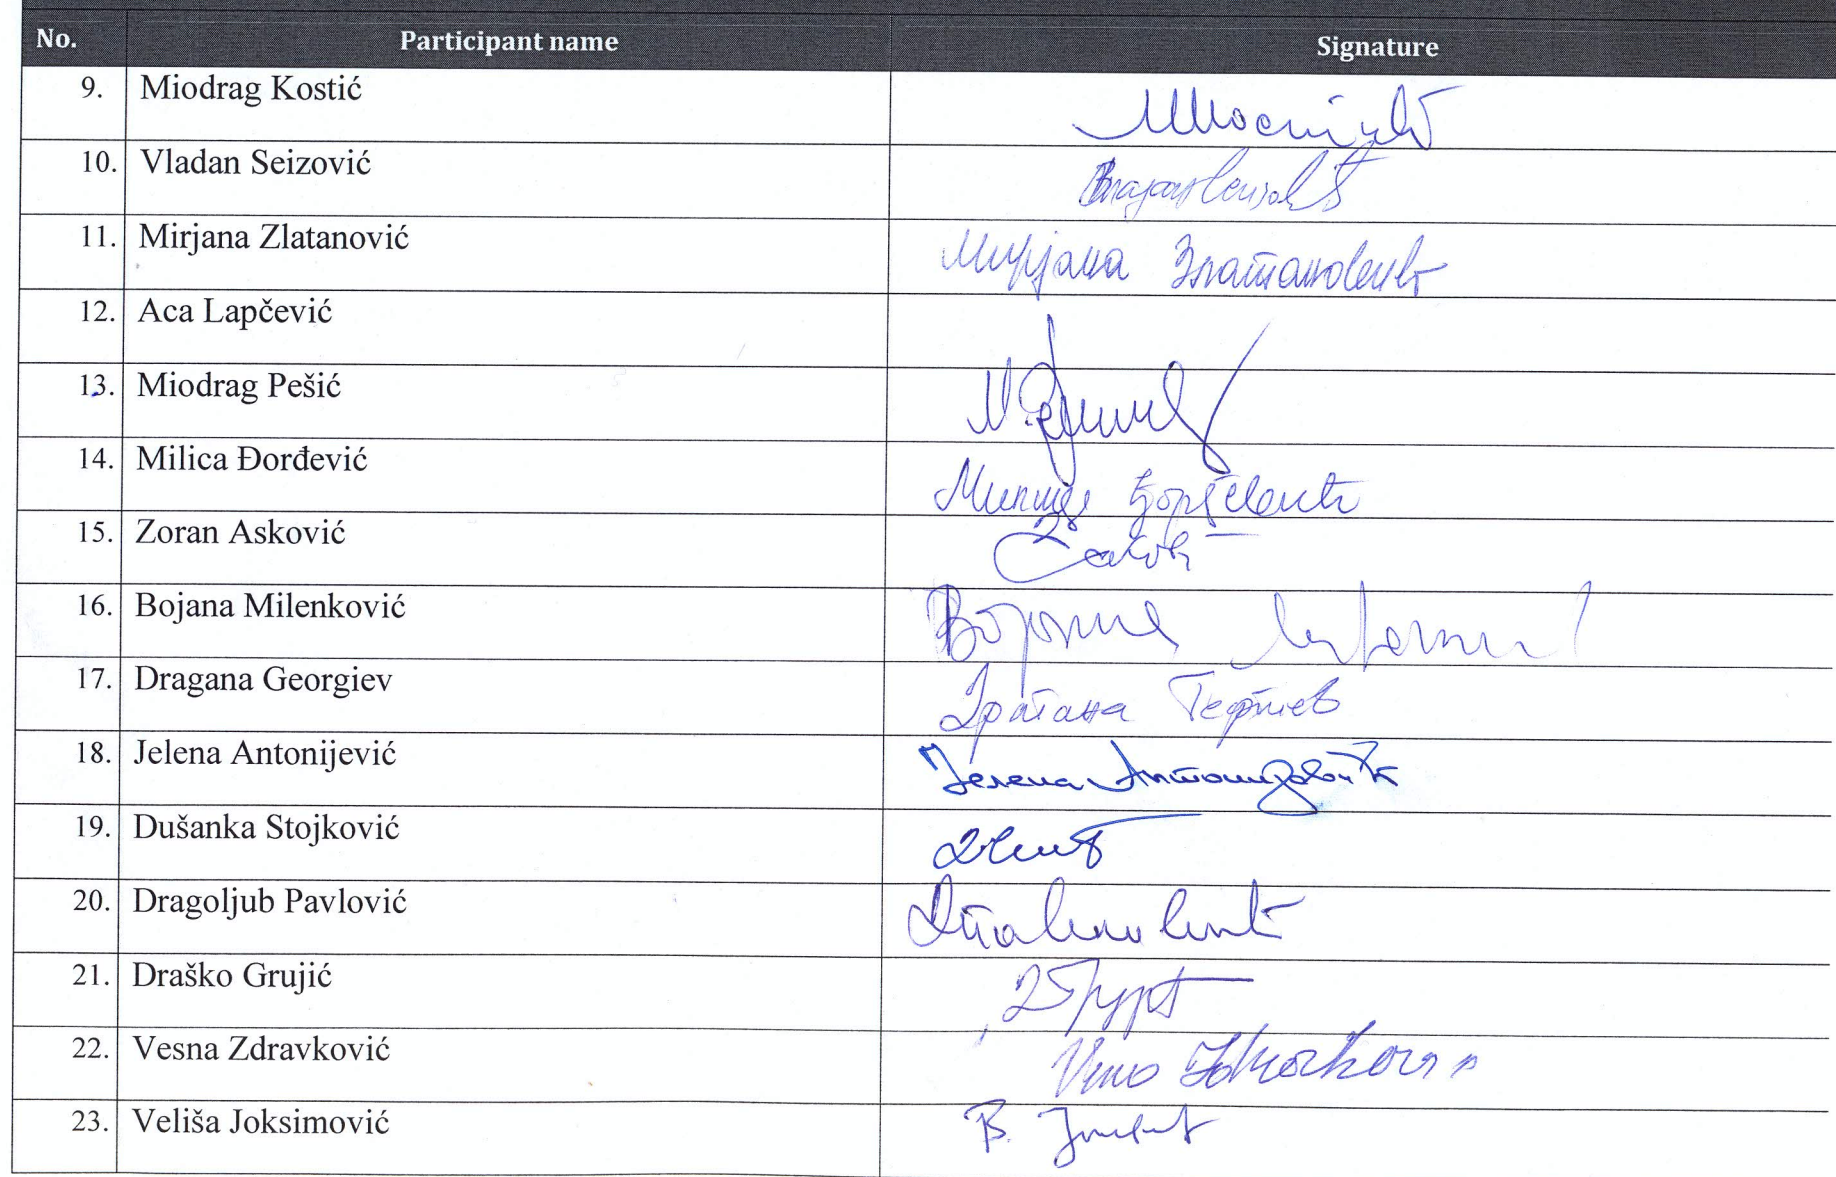 No. Participant name Signature
9. Miodrag Kostić
10. Vladan Seizović
11. Mirjana Zlatanović Мирјана Златановић
12. Aca Lapčević
13. Miodrag Pešić
14. Milica Đorđević Милица Ђорђевић
15. Zoran Asković
16. Bojana Milenković Бојана
17. Dragana Georgiev Драгана Георгиев
18. Jelena Antonijević Јелена Антонијевић
19. Dušanka Stojković
20. Dragoljub Pavlović
21. Draško Grujić
22. Vesna Zdravković
23. Veliša Joksimović